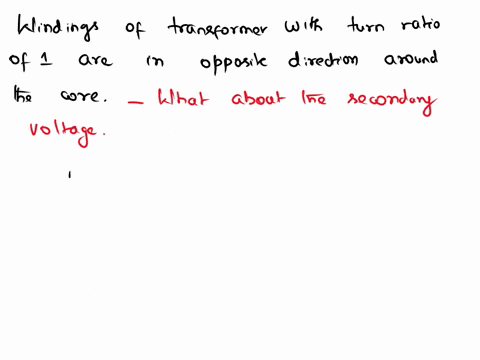 Windings of transformer with turn ratio
of 1 are in opposite direction around
the core. - What about the secondary
voltage.